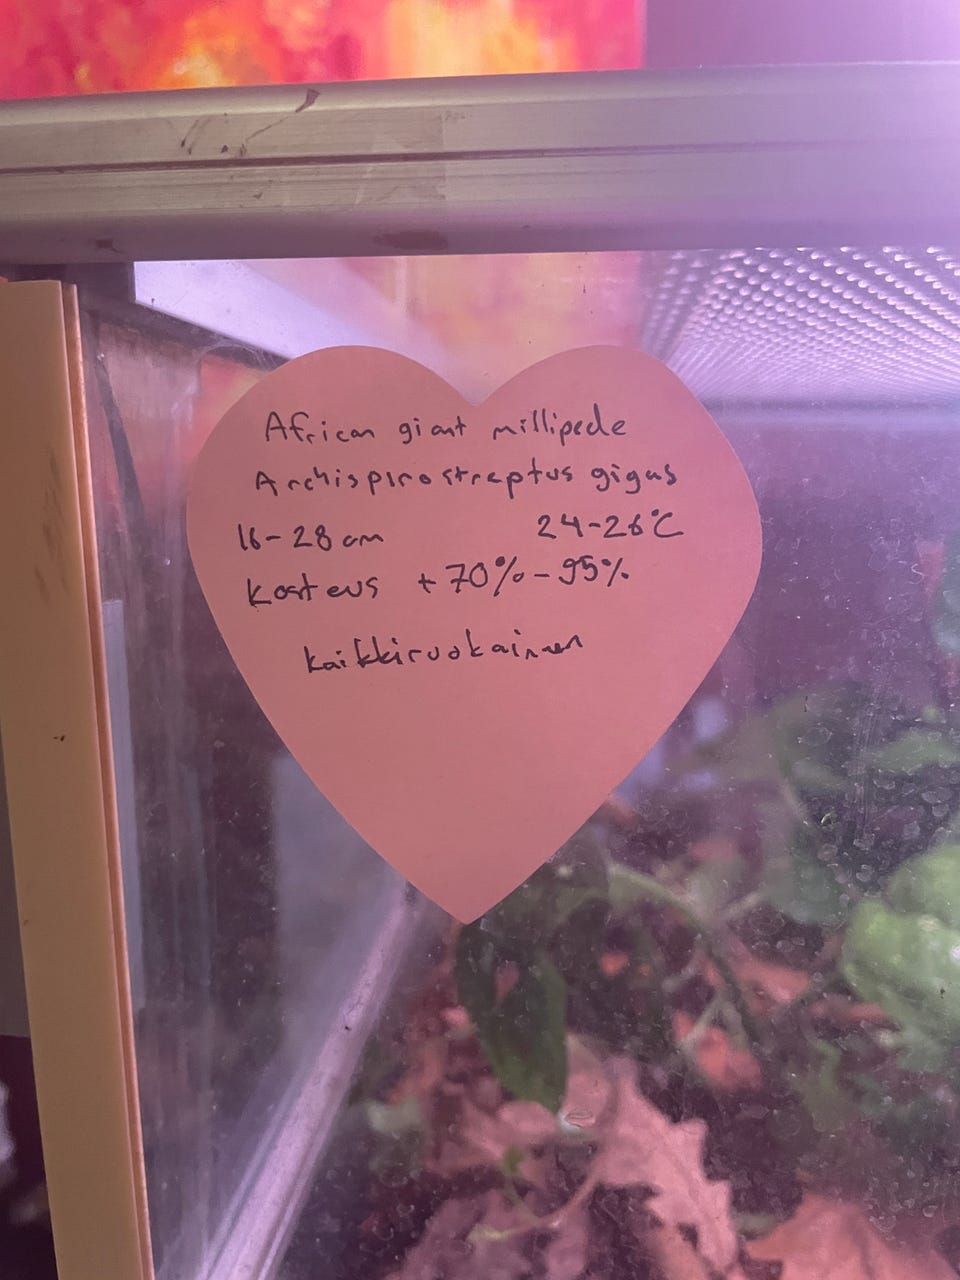 African giant millipede
Archispirostreptus gigas
16-28 cm 24-26°C
Kosteus +70%-95%
kaikkiruokainen